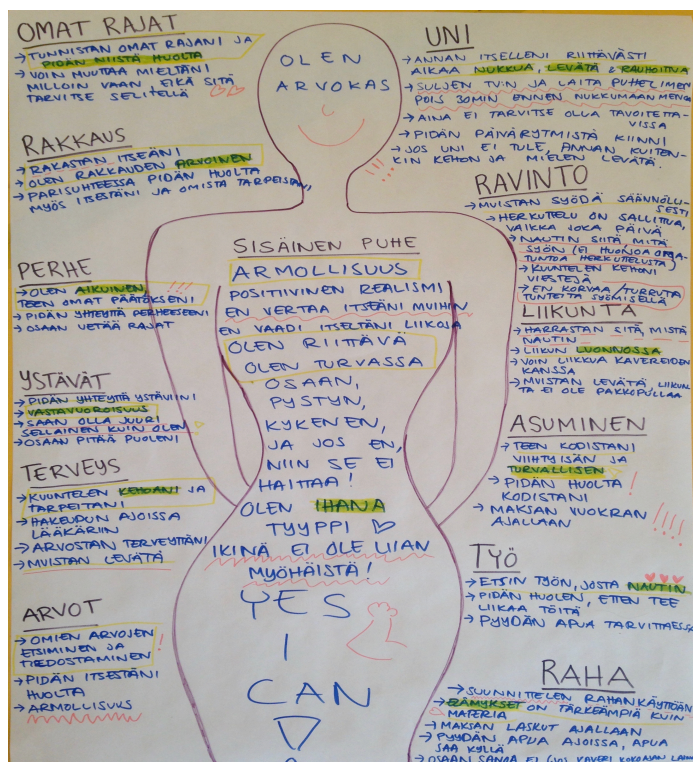 OMAT RAJAT
→ TUNNISTAN OMAT RAJANI JA
PIDÄN NIISTÄ HUOLTA
→ VOIN MUUTTAA MIELTÄNI
MILLOIN VAAN EIKÄ SITÄ
TARVITSE SELITELLÄ
RAKKAUS
→ RAKASTAN ITSEÄNI
→ OLEN RAKKAUDEN ARVOINEN
→ PARISUHTEESSA PIDÄN HUOLTA
MYÖS ITSESTÄNI JA OMISTA TARPEISTANI,
PERHE
→ OLEN AIKUINEN, !!!
TEEN OMAT PÄÄTÖKSENI
→ PIDÄN YHTEYTTÄ PERHEESEENI
→ OSAAN VETÄÄ RAJAT
YSTÄVÄT
→ PIDÄN YHTEYTTÄ YSTÄVIINI
→ VASTAVUOROISUUS
→ SAAN OLLA JUURI
SELLAINEN KUIN OLEN
→ OSAAN PITÄÄ PUOLENI
TERVEYS
→ KUUNTELEN KEHOANI JA
TARPEITANI
→ HAKEUDUN AJOISSA
LÄÄKÄRIIN
→ ARVOSTAN TERVEYTTÄNI
→ MUISTAN LEVÄTÄ
ARVOT
→ OMIEN ARVOJEN !
ETSIMINEN JA
TIEDOSTAMINEN
→ PIDÄN ITSESTÄNI
HUOLTA
→ ARMOLLISUUS
OLEN
ARVOKAS
SISÄINEN PUHE
ARMOLLISUUS
POSITIIVINEN REALISMI
EN VERTAA ITSEÄNI MUIHIN
EN VAADI ITSELTÄNI LIIKOJA
OLEN RIITTÄVÄ
OLEN TURVASSA
OSAAN,
PYSTYN,
KYKENEN,
JA JOS EN,
NIIN SE EI
HAITTAA!
OLEN IHANA
TYYPPI ♡
IKINÄ EI OLE LIIAN
MYÖHÄISTÄ!
YES
I
CAN
UNI
→ ANNAN ITSELLENI RIITTÄVÄSTI
AIKAA NUKKUA, LEVÄTÄ & RAUHOITTUA
→ SULJEN TV:N JA LAITA PUHELIMEN
POIS 30MIN ENNEN NUKKUMAANMENOA
→ AINA EI TARVITSE OLLA TAVOITETTA-
VISSA
→ PIDÄN PÄIVÄRYTMISTÄ KIINNI
→ JOS UNI EI TULE, ANNAN KUITEN-
KIN KEHON JA MIELEN LEVÄTÄ.
RAVINTO
→ MUISTAN SYÖDÄ SÄÄNNÖLLI-
SESTI
→ HERKUTTELU ON SALLITTUA,
VAIKKA JOKA PÄIVÄ
→ NAUTIN SIITÄ, MITÄ
SYÖN (EI HUONOA OMA-
TUNTOA HERKUTTELUSTA)
→ KUUNTELEN KEHONI
VIESTEJÄ
→ EN KORVAA/TURRUTA
TUNTEITA SYÖMISELLÄ
LIIKUNTA
→ HARRASTAN SITÄ, MISTÄ
NAUTIN
→ LIIKUN LUONNOSSA
→ VOIN LIIKKUA KAVEREIDEN
KANSSA
→ MUISTAN LEVÄTÄ, LIIKUN-
TA EI OLE PAKKOPULLAA
ASUMINEN
→ TEEN KODISTANI
VIIHTYISÄN JA
TURVALLISEN
→ PIDÄN HUOLTA !
KODISTANI
→ MAKSAN VUOKRAN !!!!
AJALLAAN
TYÖ
→ ETSIN TYÖN, JOSTA NAUTIN
→ PIDÄN HUOLEN, ETTEN TEE
LIIKAA TÖITÄ
→ PYYDÄN APUA TARVITTAESSA
RAHA
→ SUUNNITTELEN RAHANKÄYTTÖÄNI
→ ELÄMYKSET ON TÄRKEÄMPIÄ KUIN
MATERIA
→ MAKSAN LASKUT AJALLAAN
→ PYYDÄN APUA AJOISSA, APUA
SAA KYLLÄ
→ OSAAN SANOA EI (JOS KAVERI KOKOAJAN